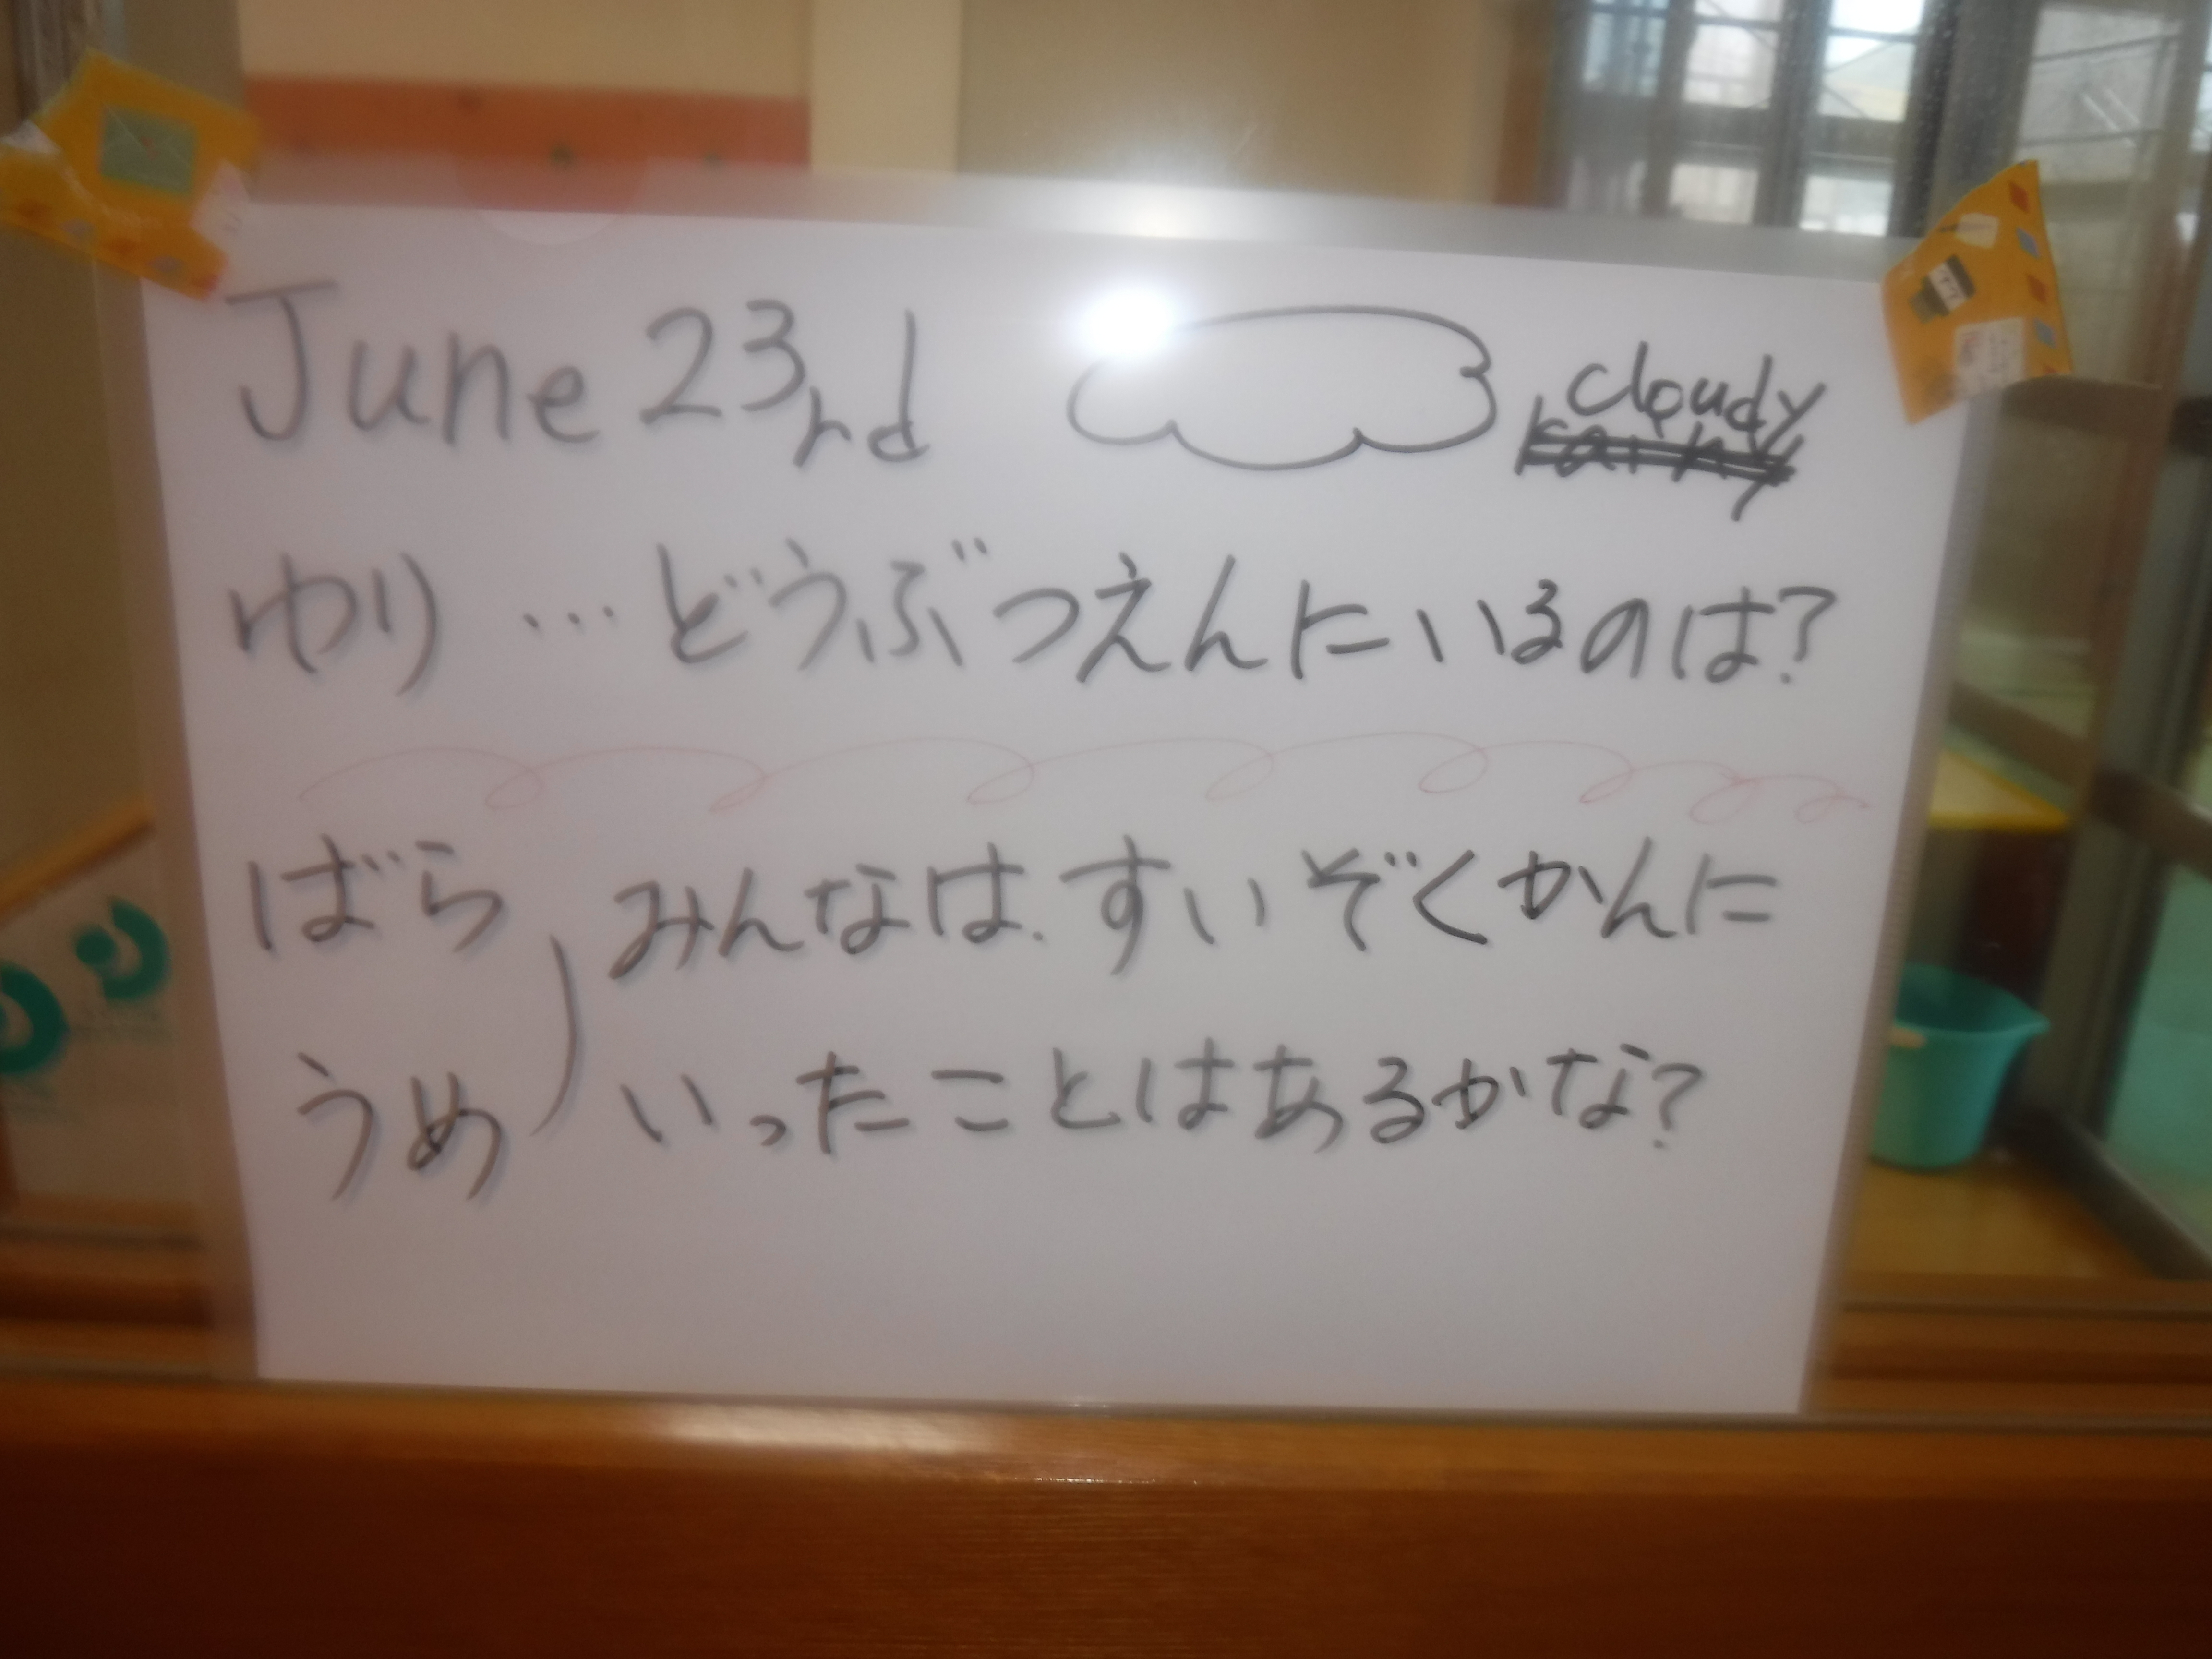 June 23rd cloudy
ゆり …どうぶつえんにいるのは?
ばら みんなは、すいぞくかんに
うめ いったことはあるかな?